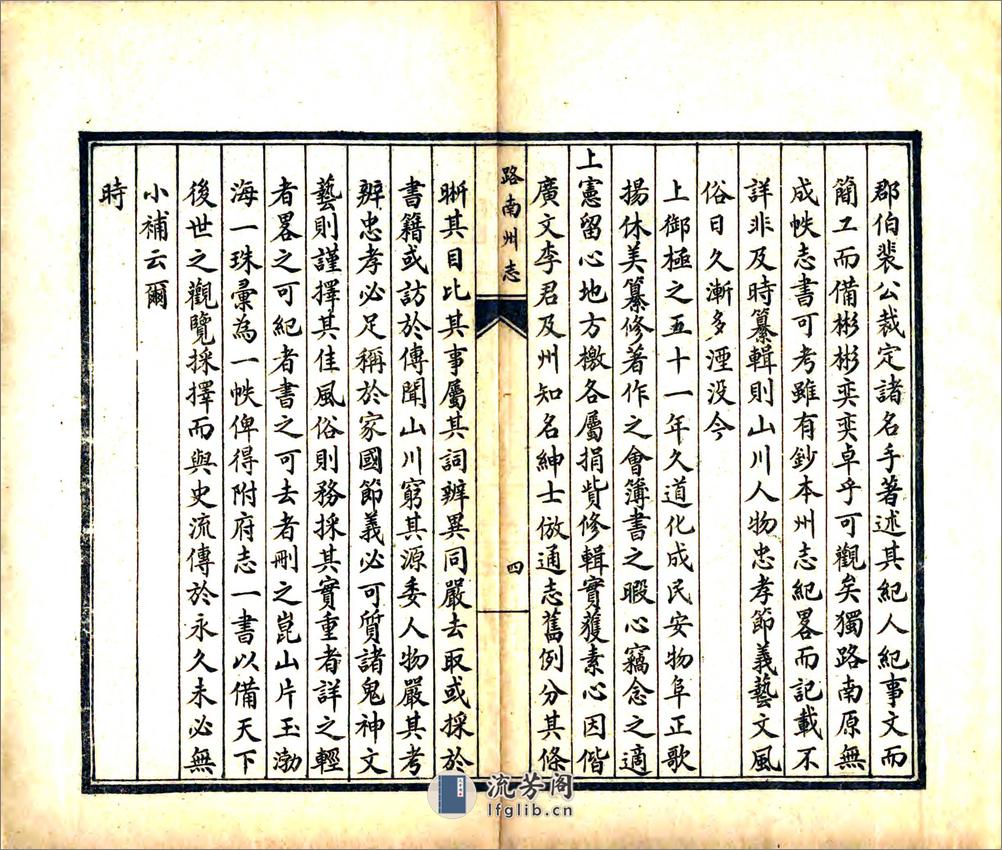 郡伯裴公裁定諸名手著述其紀人紀事文而
簡工而備彬彬奕奕卓乎可觀矣獨路南原無
成帙志書可考雖有鈔本州志紀畧而記載不
詳非及時纂輯則山川人物忠孝節義藝文風
俗日久漸多湮没今
上御極之五十一年久道化成民安物阜正歌
揚休美纂修著作之會簿書之暇心竊念之適
上憲留心地方檄各屬捐貲修輯實獲素心因偕
廣文李君及州知名紳士倣通志舊例分其條
路南州志
四
晰其目比其事屬其詞辨異同嚴去取或採於
書籍或訪於傳聞山川窮其源委人物嚴其考
辨忠孝必足稱於家國節義必可質諸鬼神文
藝則謹擇其佳風俗則務採其實重者詳之輕
者畧之可紀者書之可去者刪之崑山片玉渤
海一珠彙為一帙俾得附府志一書以備天下
後世之觀覽採擇而與史流傳於永久未必無
小補云爾
時
流芳阁
lfglib.cn